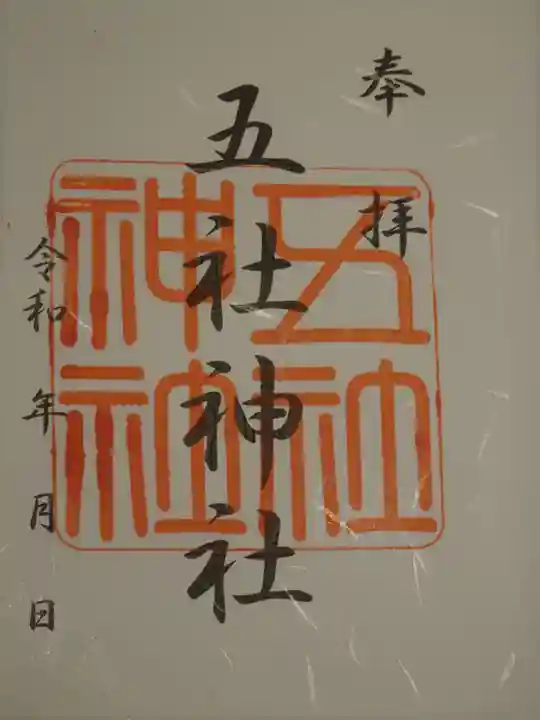 奉拝
五社神社
令和 年 月 日
五社
神社